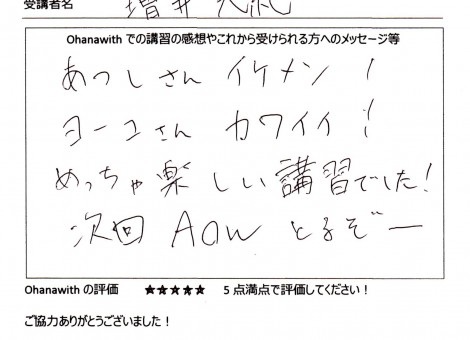 受講者名
Ohanawith での講習の感想やこれから受けられる方へのメッセージ等
あつしさん イケメン！
ヨーコさん カワイイ！
めっちゃ楽しい講習でした！
次回 AOW とるぞー
Ohanawith の評価 ★★★★★ 5点満点で評価してください！
ご協力ありがとうございました！